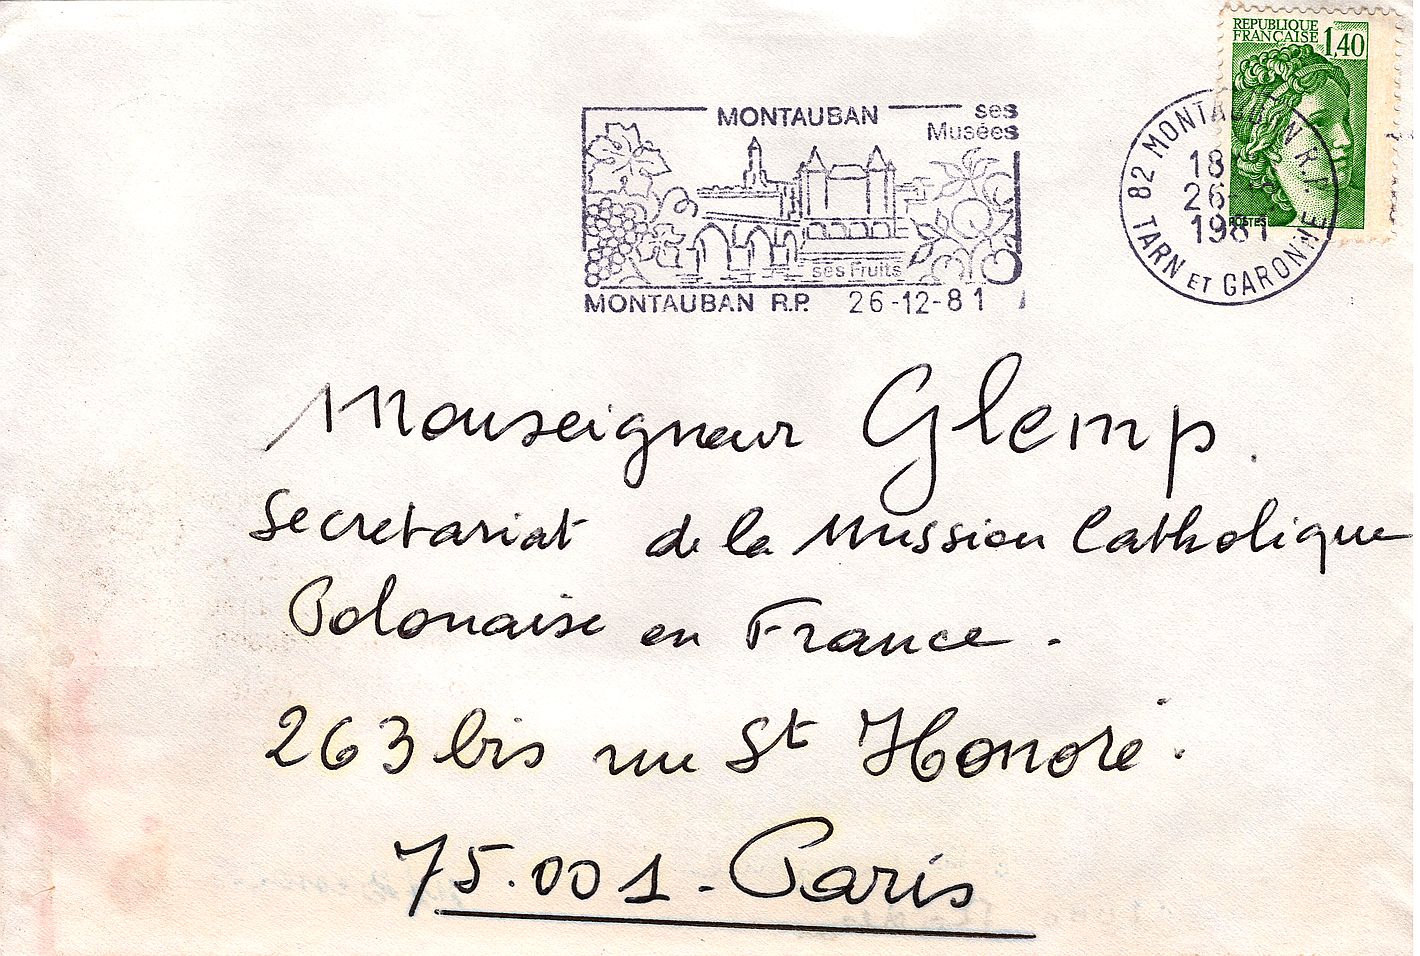 REPUBLIQUE
FRANÇAISE 1,40
POSTES
MONTAUBAN
ses
Musées
ses Fruits
MONTAUBAN R.P. 26-12-81
82 MONTAUBAN R.P.
18
26
1981
TARN ET GARONNE
Monseigneur Glemp.
Secretariat de la Mission Catholique
Polonaise en France.
263 bis rue St Honoré.
75.001-Paris